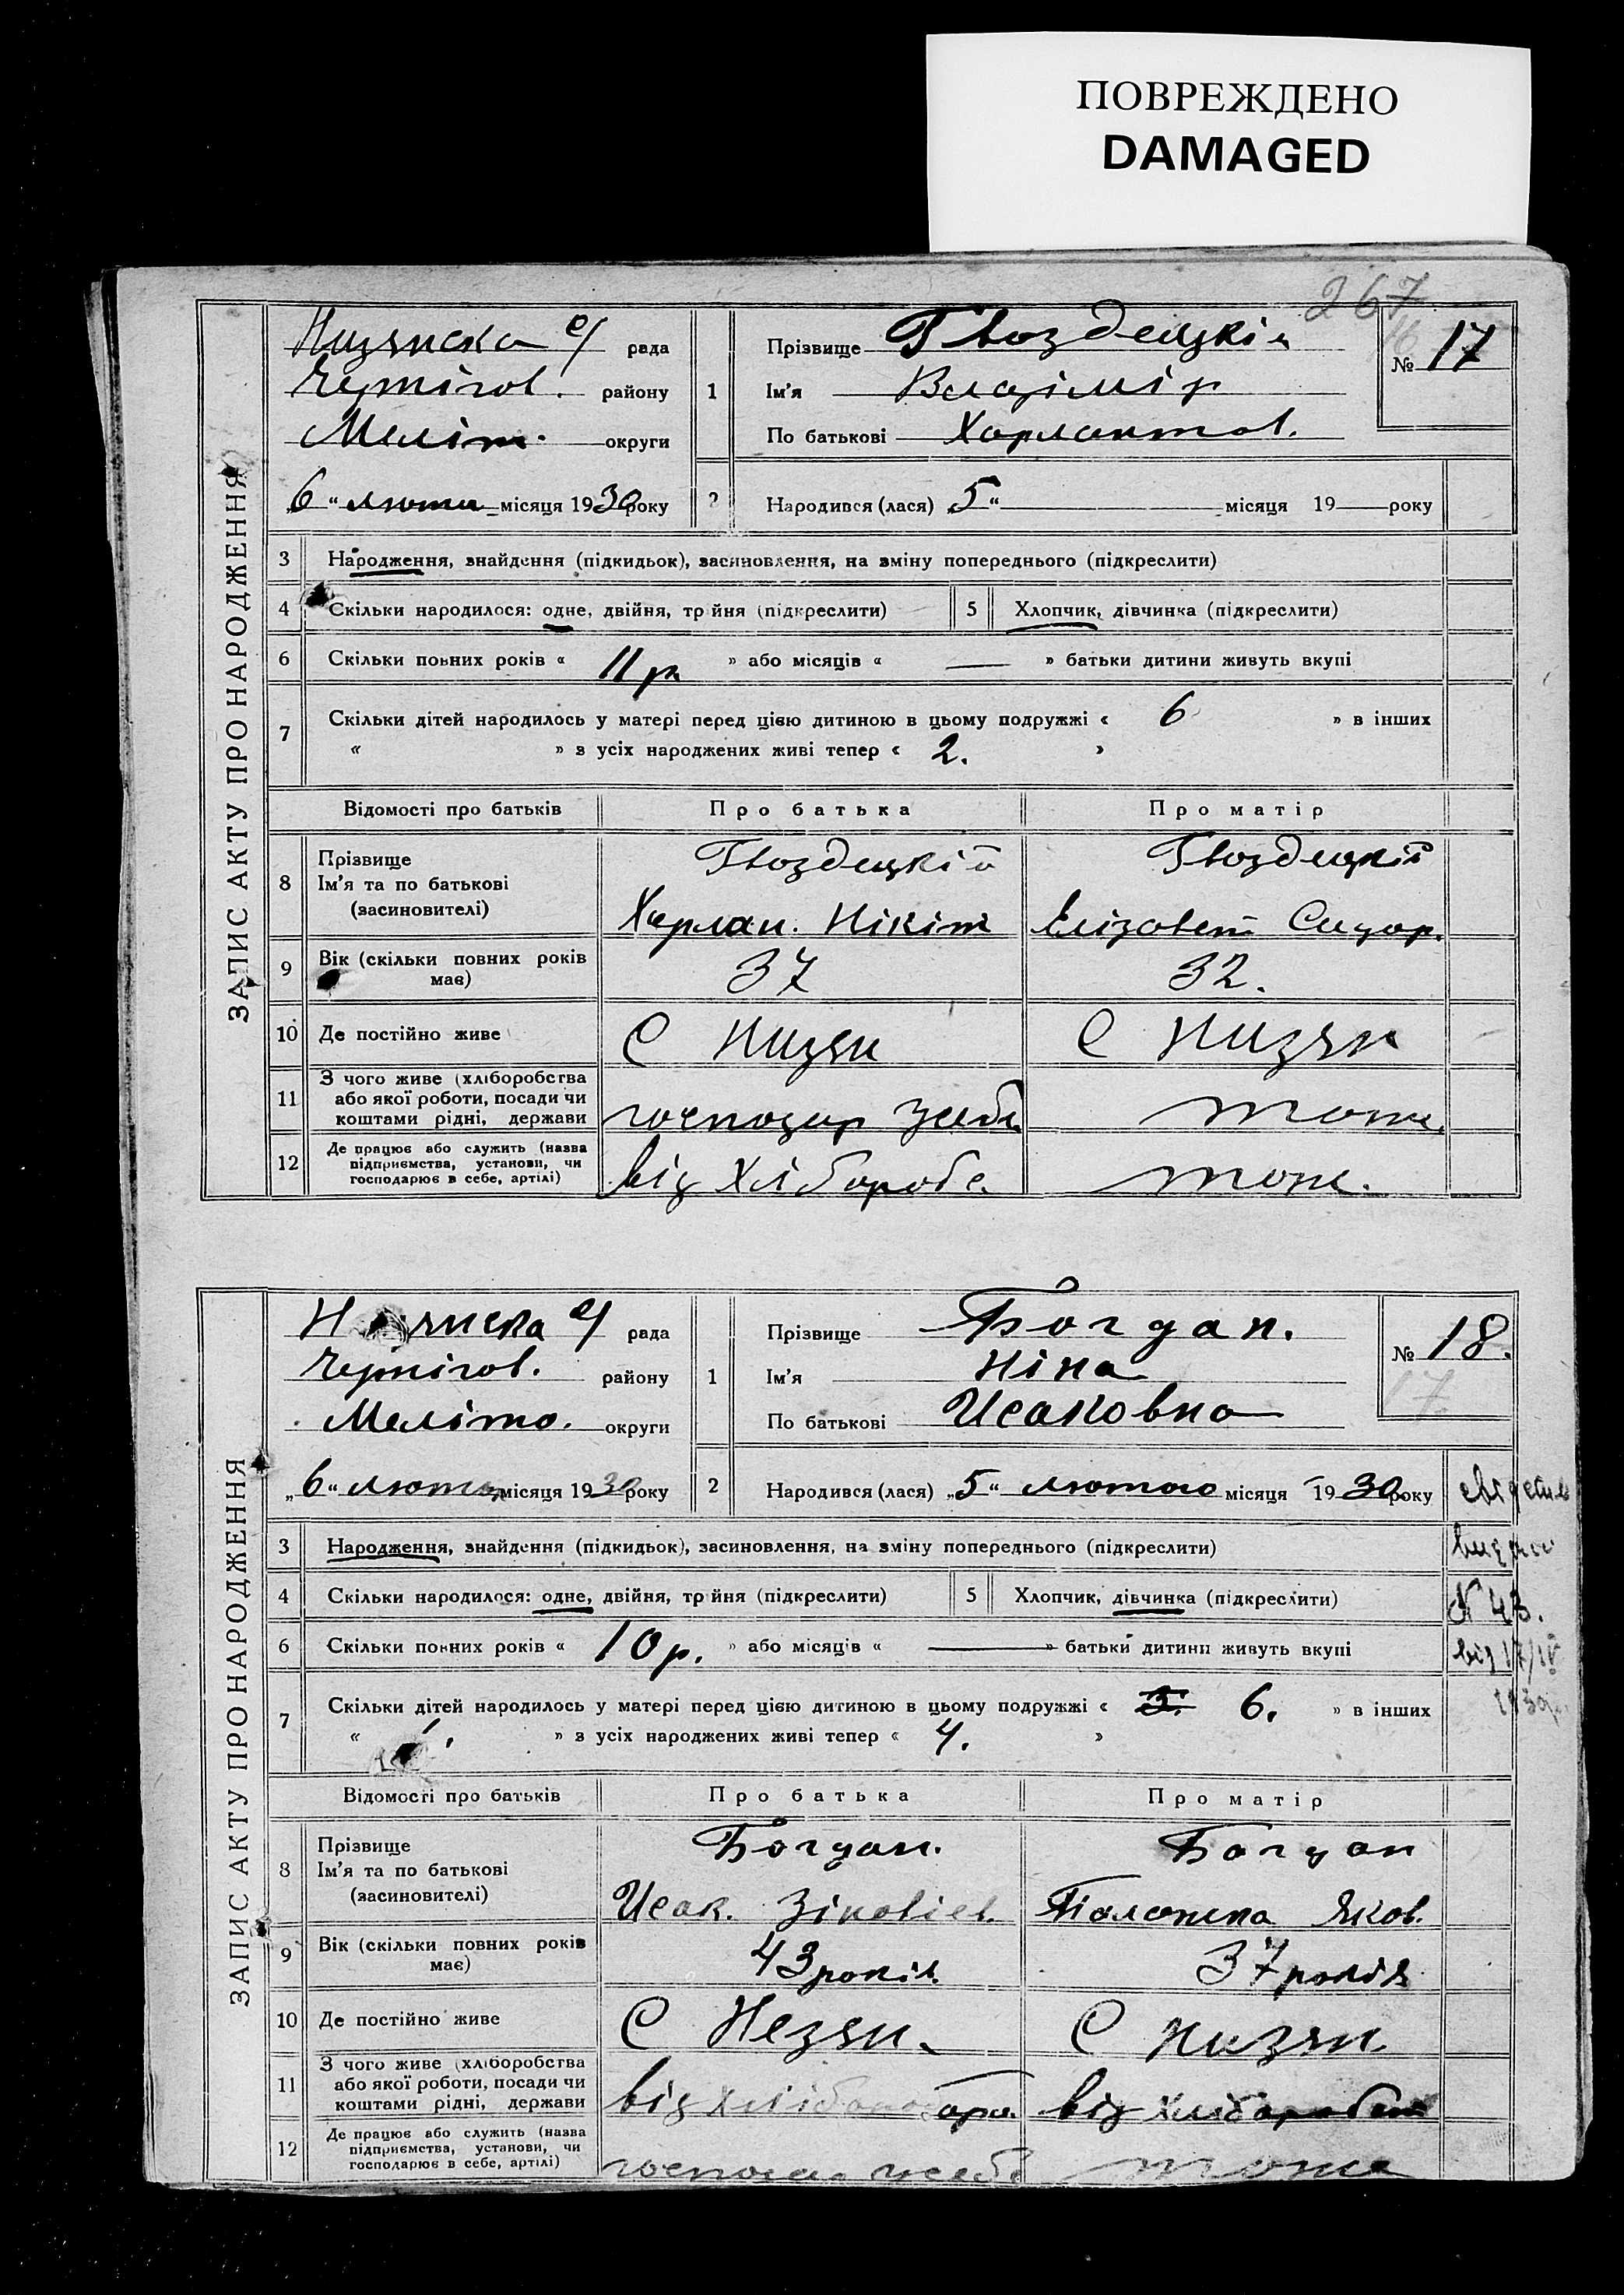 ПОВРЕЖДЕНО
DAMAGED
267
ЗАПИС АКТУ ПРО НАРОДЖЕННЯ
Низянска с/ рада
Чернігов. району
Меліт. округи
„6“ люта місяця 1930 року
1 Прізвище Гвоздецкій
Ім’я Владімір
По батькові Харлантов.
№ 17
16
2 Народився (лася) „5“ місяця 19 року
3 Народження, знайдення (підкидьок), засиновлення, на зміну попереднього (підкреслити)
4 Скільки народилося: одне, двійня, тр йня (підкреслити) 5 Хлопчик, дівчинка (підкреслити)
6 Скільки повних років « 11 р » або місяців « — » батьки дитини живуть вкупі
7 Скільки дітей народилось у матері перед цією дитиною в цьому подружжі « 6 » в інших
« » з усіх народжених живі тепер « 2. »
Відомості про батьків Про батька Про матір
8 Прізвище
Ім’я та по батькові
(засиновителі)
Гвоздецкій
Харлан. Нікіт
Гвоздецкій
Елізовет Сидор.
9 Вік (скільки повних років має) 37 32.
10 Де постійно живе С Низян С Низян
11 З чого живе (хліборобства
або якої роботи, посади чи
коштами рідні, держави
господар усебе тоже.
12 Де працює або служить (назва
підприємства, установи, чи
господарює в себе, артілі)
від Хліборобс. тоже.
ЗАПИС АКТУ ПРО НАРОДЖЕННЯ
янска с/ рада
Чернігов. району
Меліто. округи
„6“ люта місяця 1930 року
1 Прізвище Богдан.
Ім’я Ніна
По батькові Исаковна
№ 18.
17
2 Народився (лася) „5“ лютого місяця 1930 року
видано
№ 43.
від 17/IV
3 Народження, знайдення (підкидьок), засиновлення, на зміну попереднього (підкреслити)
4 Скільки народилося: одне, двійня, тр йня (підкреслити) 5 Хлопчик, дівчинка (підкреслити)
6 Скільки повних років « 10 р. » або місяців « — » батьки дитини живуть вкупі
7 Скільки дітей народилось у матері перед цією дитиною в цьому подружжі « 6. » в інших
« » з усіх народжених живі тепер « 4. »
Відомості про батьків Про батька Про матір
8 Прізвище
Ім’я та по батькові
(засиновителі)
Богдан.
Исак. Зіновіев.
Богдан
Палажка Яков.
9 Вік (скільки повних років має) 43 років 37 років
10 Де постійно живе С Незян. С Низян.
11 З чого живе (хліборобства
або якої роботи, посади чи
коштами рідні, держави
від від хліборобст
12 Де працює або служить (назва
підприємства, установи, чи
господарює в себе, артілі)
господар усебе тоже